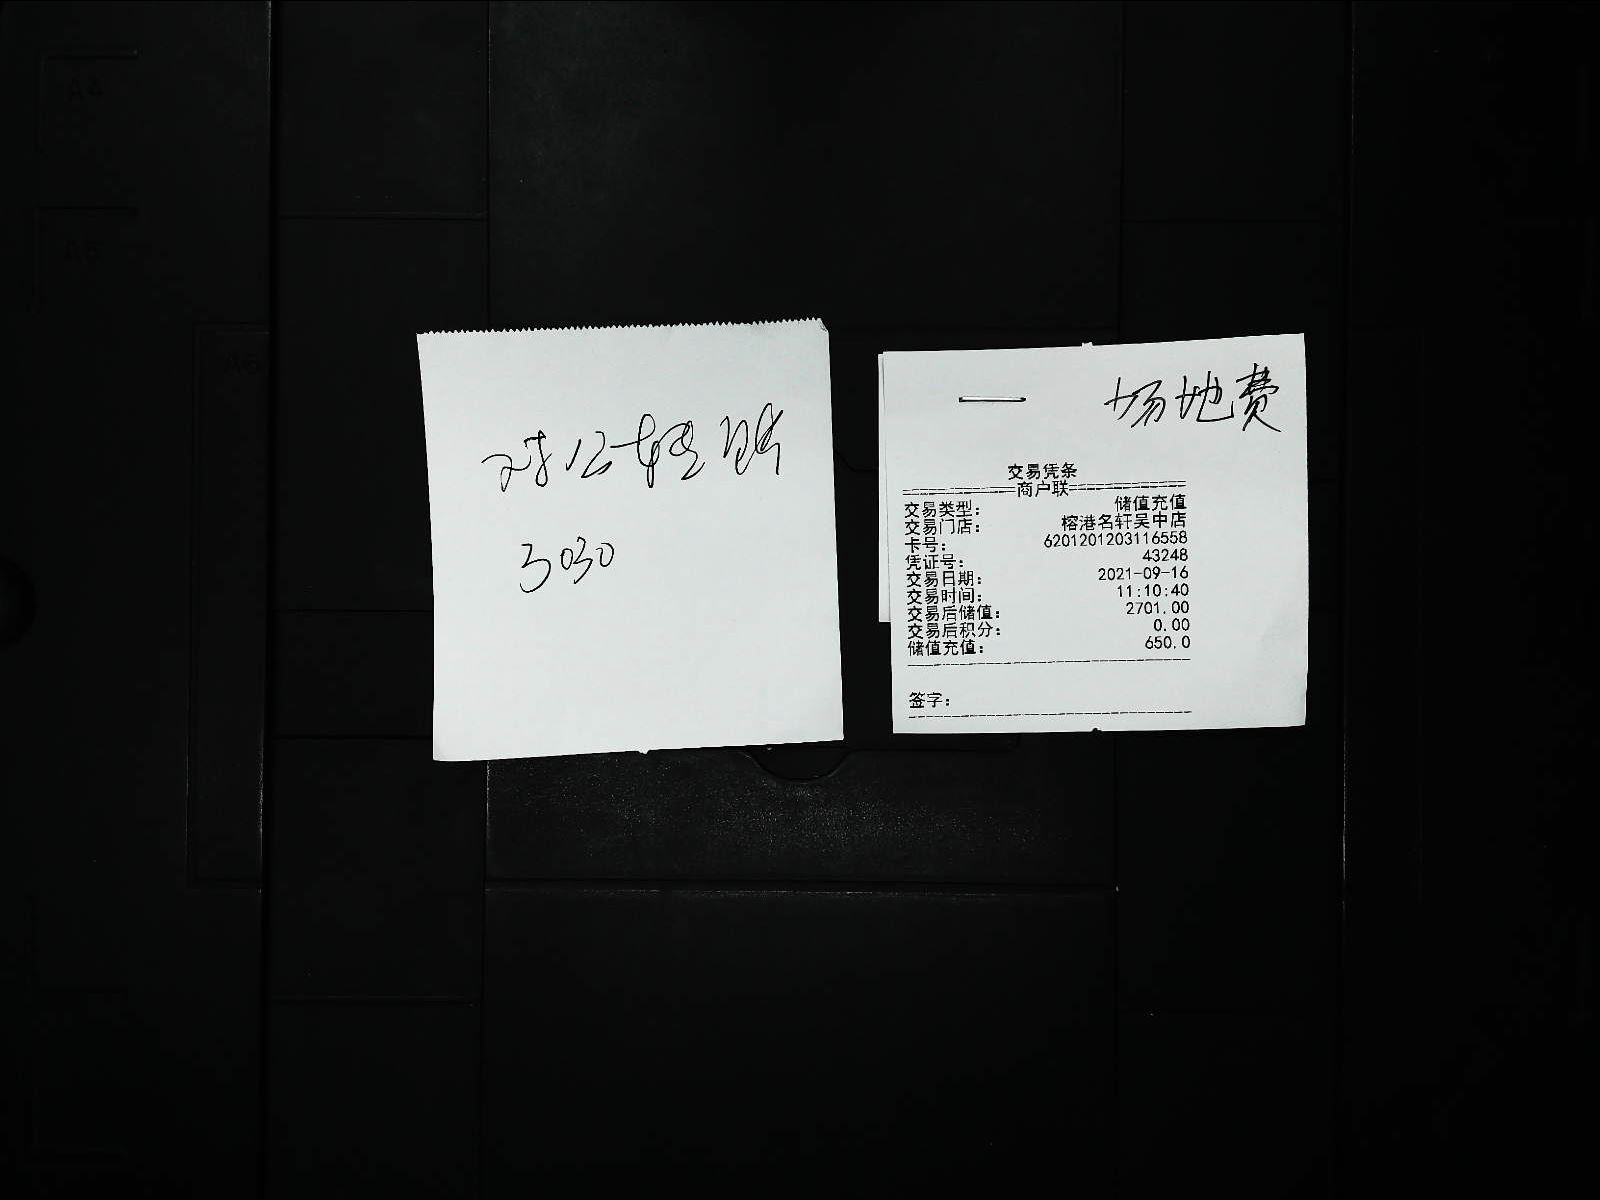 对公转账
3030
场地费
交易凭条
商户联
交易类型： 储值充值
交易门店： 榕港名轩吴中店
卡号： 6201201203116558
凭证号： 43248
交易日期： 2021-09-16
交易时间： 11:10:40
交易后储值： 2701.00
交易后积分： 0.00
储值充值： 650.0
签字：